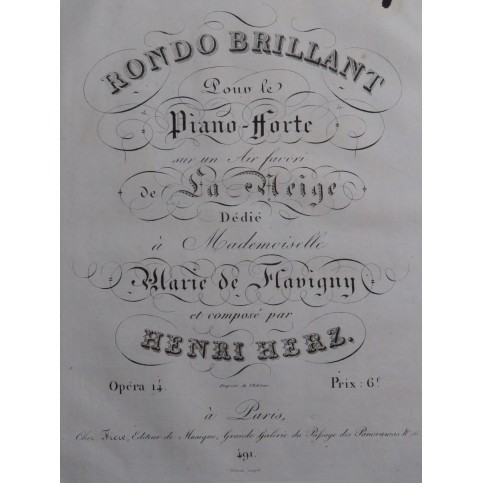 RONDO BRILLANT
Pour le
Piano-Forte
sur un Air favori
de La Neige
Dédié
à Mademoiselle
Marie de Flavigny
et composé par
HENRI HERZ.
Opéra 14. Propriété de l'Editeur Prix: 6f
à Paris,
Chez Frere, Editeur de Musique, Grande Galerie du Passage des Panoramas
491.